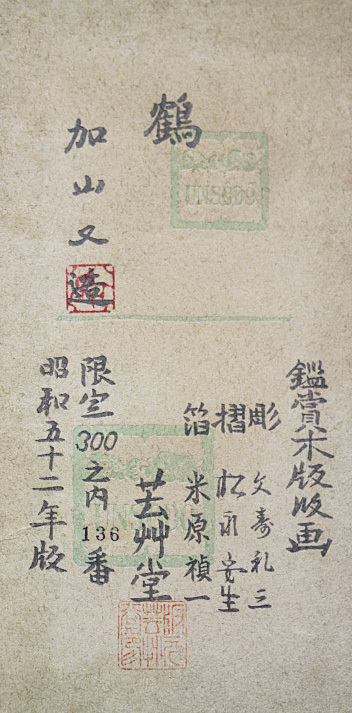 鶴
加山又造
UNSODO
鑑賞木版画
彫 文寿礼三
摺 松永安生
箔 米原禎一
芸艸堂
限定300之内136番
昭和五十二年版
UNSODO